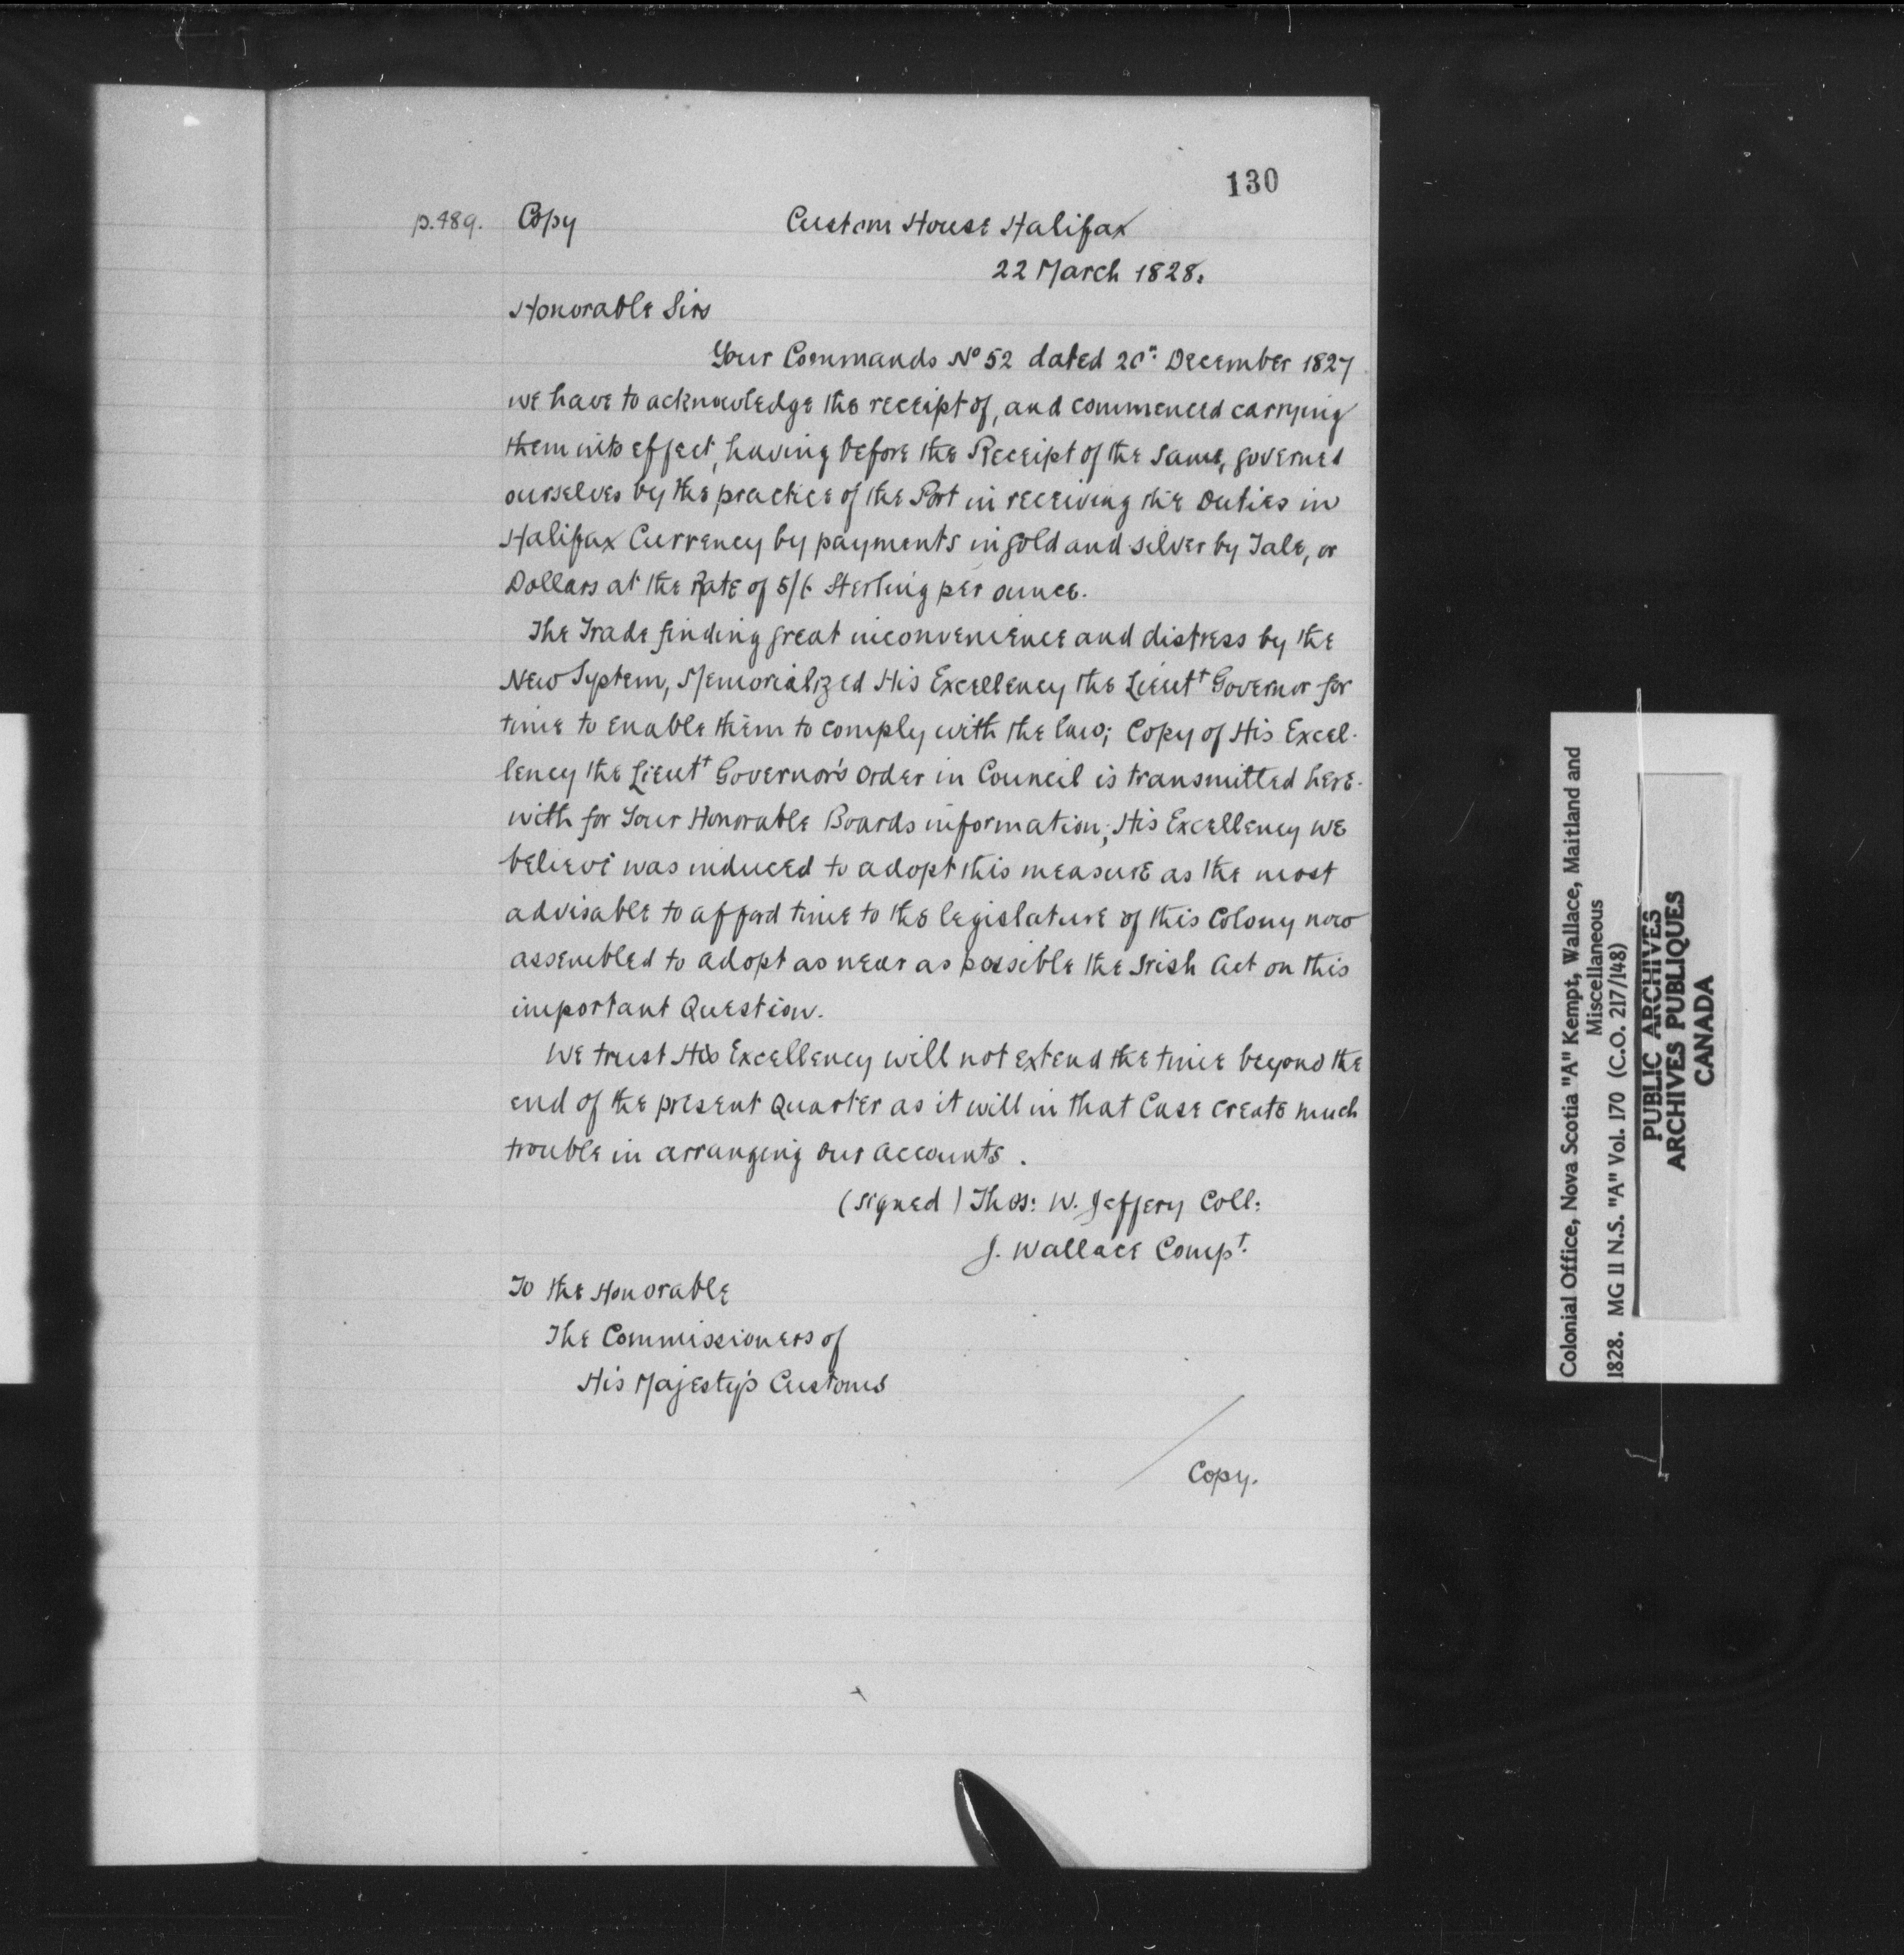 130
p.489. Copy Custom House Halifax
22 March 1828.
Honorable Sirs
Your Commands No 52 dated December 1827
we have to acknowledge the receipt of, and commenced carrying
them into effect, having before the Receipt of the same, governed
ourselves by the practice of the Port in receiving the Duties in
Halifax Currency by payments in gold and silver by Tale, or
Dollars at the Rate of Sterling per ounce.
The Trade finding great inconvenience and distress by the
New System, Memorialized His Excellency the Lieutt Governor for
time to enable them to comply with the law; Copy of His Excel-
lency the Lieutt Governor's order in Council is transmitted here-
with for Your Honorable Boards information; His Excellency we
believe was induced to adopt this measure as the most
advisable to afford time to the legislature of this Colony now
assembled to adopt as near as possible the Irish Act on this
important Question.
We trust His Excellency will not extend the time beyond the
end of the present Quarter as it will in that Case create much
trouble in arranging our accounts.
(signed) Thos: W. Jeffery Coll:
J. Wallace Compt.
To the Honorable
The Commissioners of
His Majesty's Customs
Copy.
Colonial Office, Nova Scotia "A" Kempt, Wallace, Maitland and
Miscellaneous
1828. MG 11 N.S. "A" Vol. 170 (C.O. 217/148)
PUBLIC ARCHIVES
ARCHIVES PUBLIQUES
CANADA